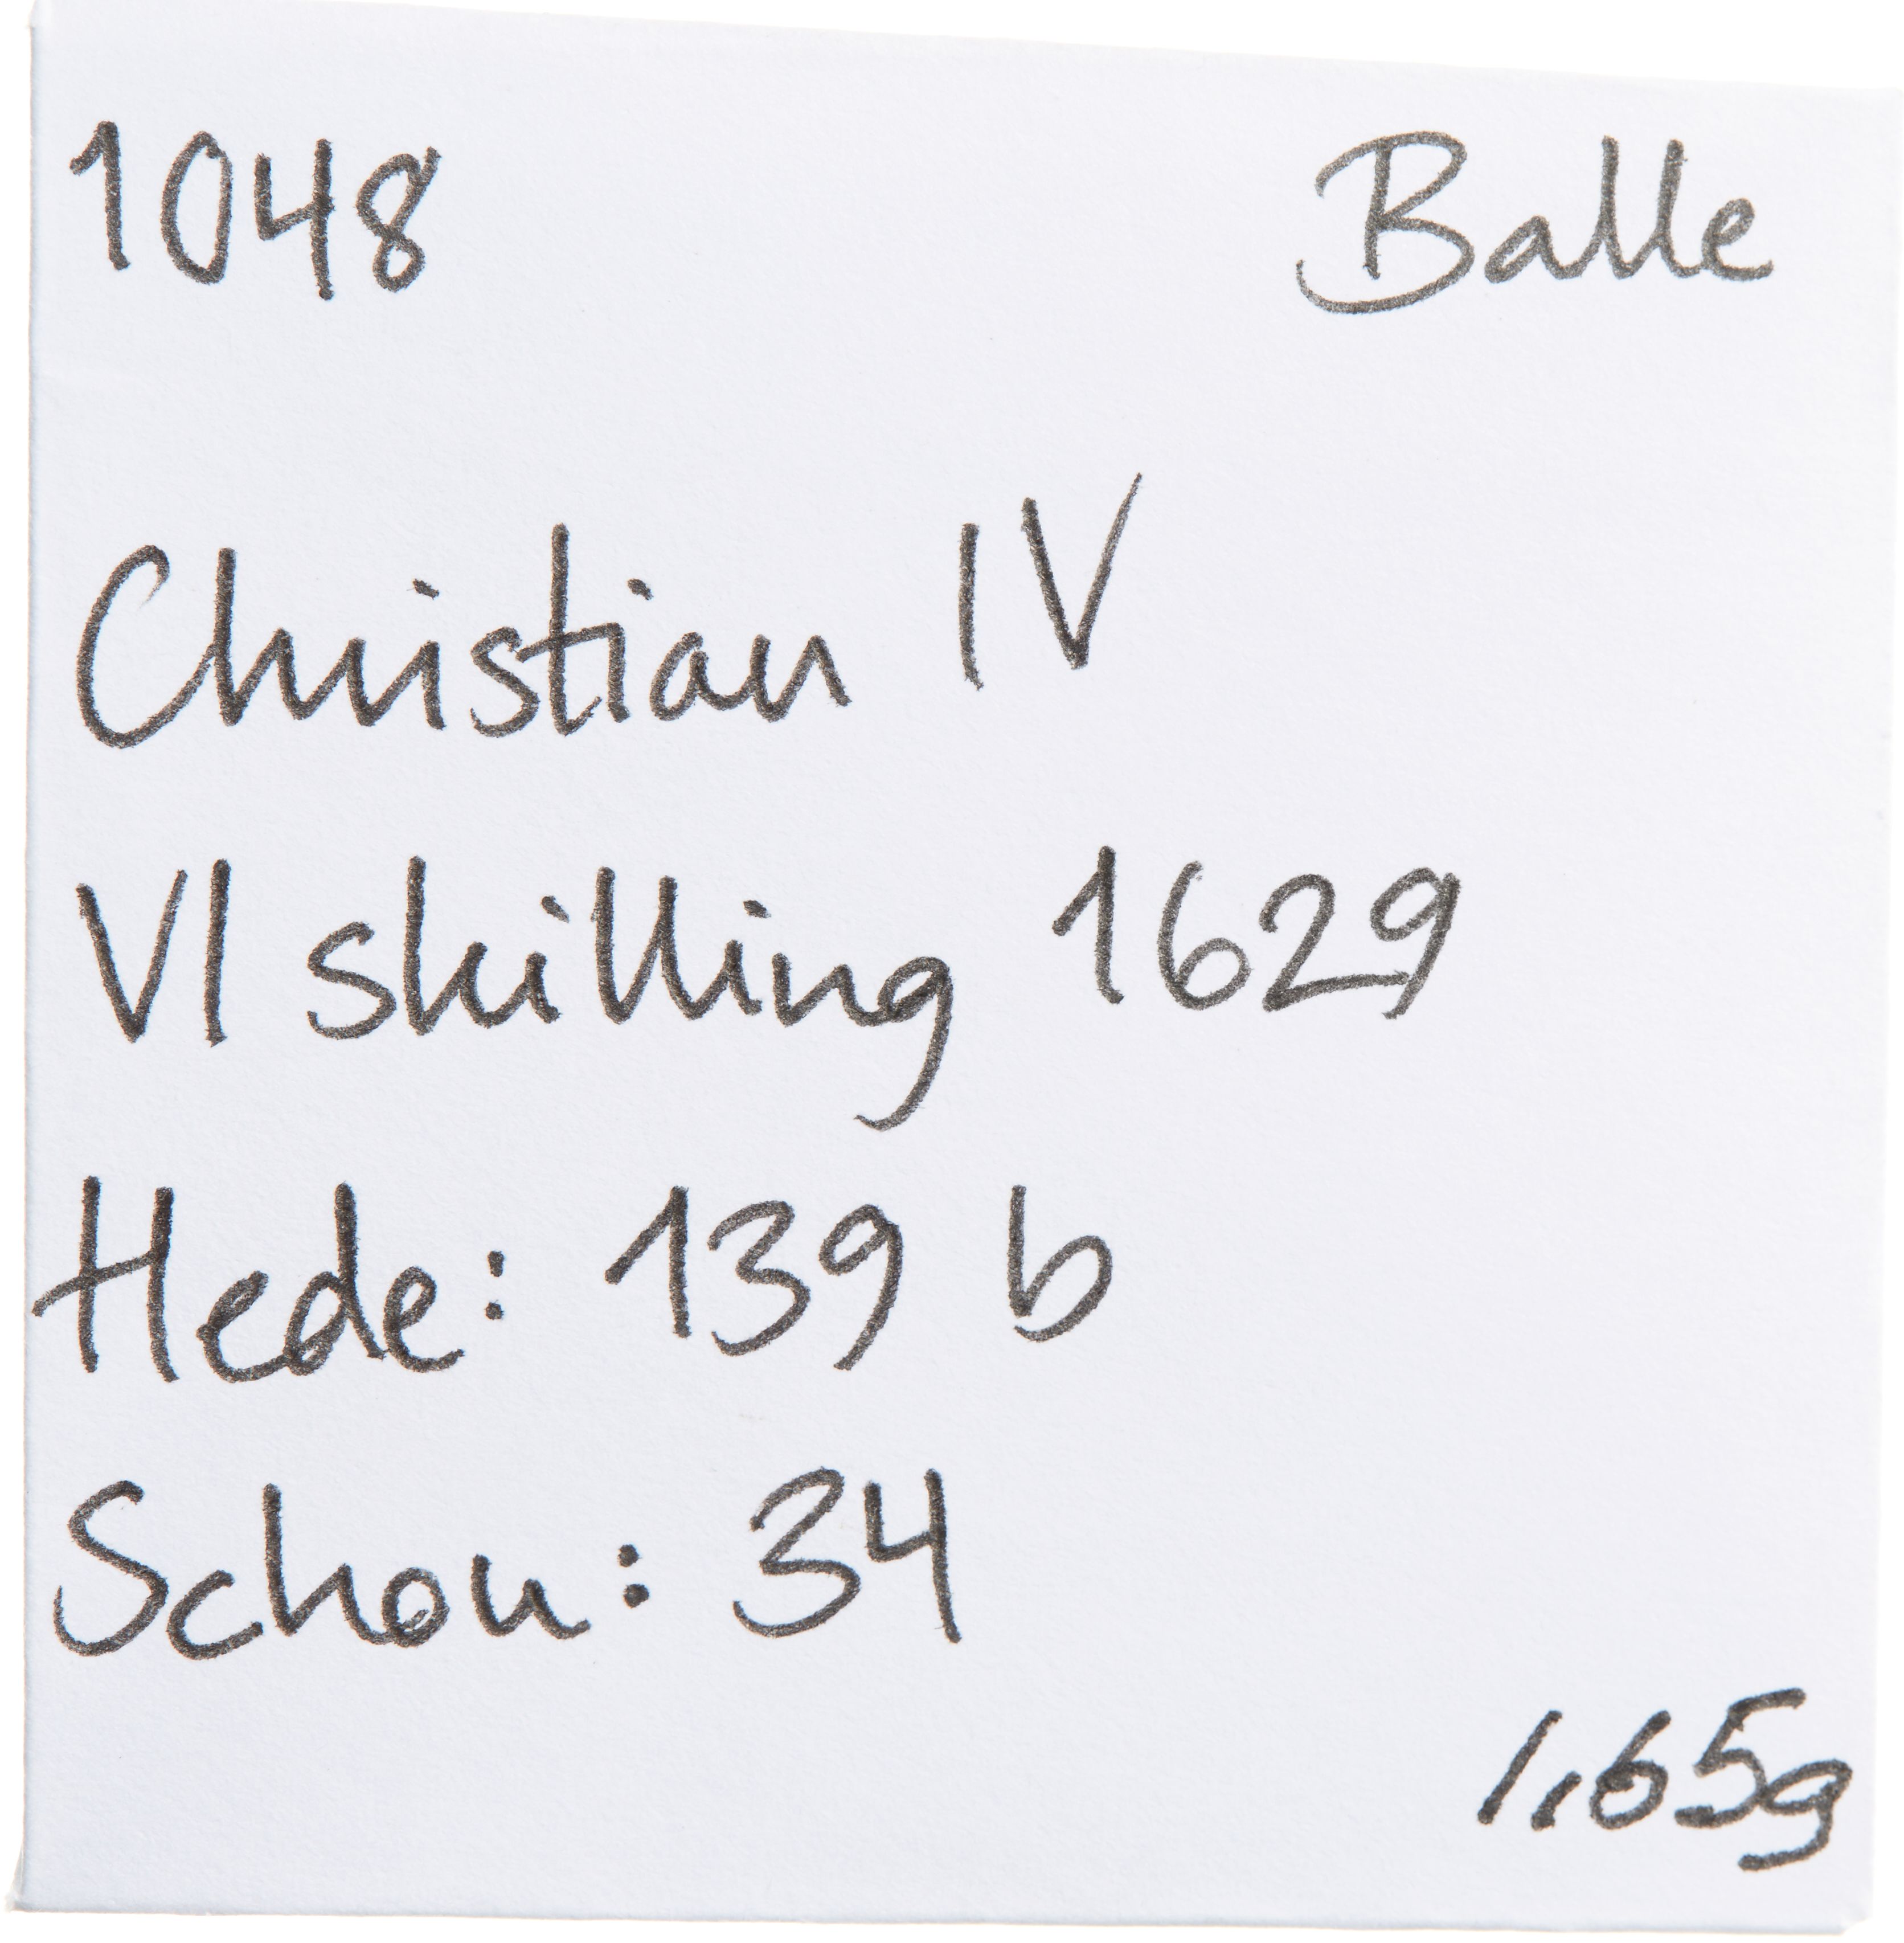 1048 Balle
Christian IV
VI skilling 1629
Hede: 139 b
Schou: 34
1,65g